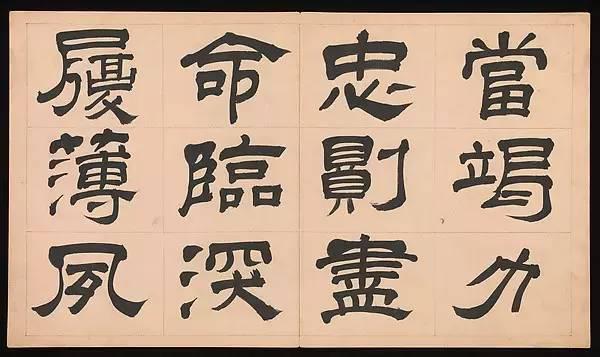 當竭力
忠則盡
命臨深
履薄夙